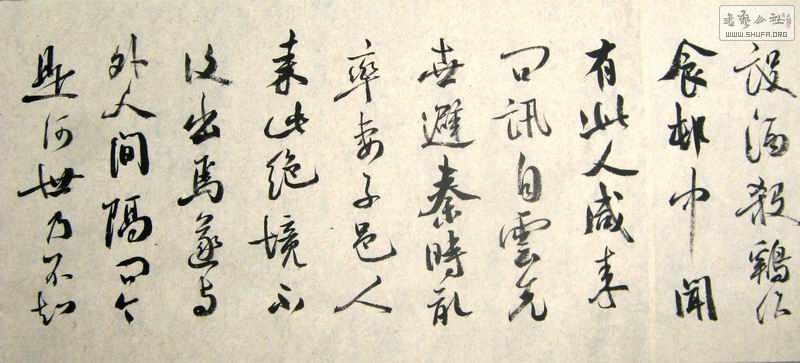 書藝公社
WWW.SHUFA.ORG
設酒殺鷄作
食邨中聞
有此人咸来
問訊自雲先
世避秦時乱
率妻子邑人
来此絶境不
復出焉遂与
外人間隔問今
是何世乃不知